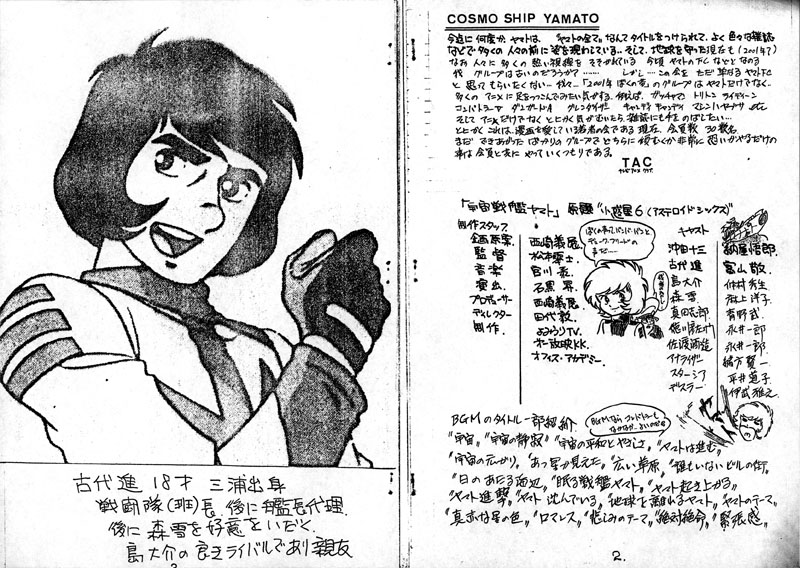 古代進 18才 三浦出身
戦闘隊(班)長 後に艦長代理
後に森雪を好意をいだく
島大介の良きライバルであり親友
COSMO SHIP YAMATO
今迄に何度か、ヤマトは、"ヤマトの全て"なんてタイトルをつけられて、よく色々な雑誌
などで多くの人々の前に姿を現わしている。そして、地球を守った現在も(2001年?)
なお人々に多くの熱い視線を
代 グループは古いのだろうか?……… しかし…この会を ただ単なるヤマトFC
と思ってもらいたくない…我々…「2001年ぼくの先」のグループはヤマトだけでなく…
多くのアニメに足をつっこんでみたい気がする。例えば、ガッチャマン トリトン ライディーン
コンバトラーV ダンガードA グレンダイザー キャンディ キャンディ etc
そしてアニメだけでなくとにかく気がむいたら、雑誌にも手をのばしたい…
とにかくこれは、漫画を愛している若者の会である 現在、会員数 30数名
まだ できあがった ばっかりのグループで
事は会員と共に やっていくつもりである。
TAC
「宇宙戦艦ヤマト」 原題 "小惑星6(アステロイドシックス)"
制作スタッフ
企画原案 西崎義展
監督 松本零士
音楽 宮川泰
演出 石黒昇
プロデューサー 西崎義展
ディレクター 田代敦
制作. よみうりTV.
オフィス・アカデミー.
キャスト
沖田十三 納屋悟郎
古代進 富山敬
島大介 仲村秀生
森雪 麻上洋子
真田志郎 青野武
徳川彦左ヱ門 永井一郎
佐渡酒造 永井一郎
イナライザー 緒方賢一
スターシア 平井道子
デスラー 伊武雅之
BGMのタイトル一部紹介
"宇宙" "宇宙の静寂" "宇宙の平和とやさしさ" "ヤマトは進む"
"宇宙の広がり" "あっ星が見えた" "広い草原" "誰もいないビルの街"
"日のあたる海辺" "眠る戦艦ヤマト" "ヤマト起き上がる"
"ヤマト進撃" "ヤマト沈んでいる" "地球を離れるヤマト" "ヤマトのテーマ"
"真赤な星の色" "ロマンス" "悲しみのテーマ" "絶対絶命" "緊張感"
2.